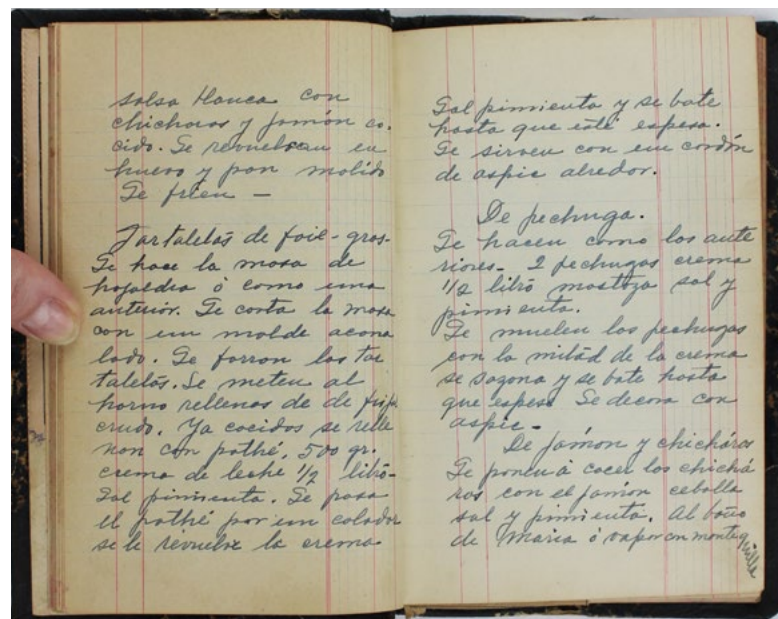 salsa blanca con
chicharos y jamón co-
cido. Se revuelcan en
huevo y pan molido
Se frien —
Tartaletas de foie-gras-
Se hace la masa de
hojaldra ó como una
anterior. Se corta la masa
con un molde acana
lado. Se forran las tar
taletas. Se meten al
horno rellenas de de frijol
crudo. Ya cocidos se relle
nan con pathé, 500 gr.
crema de leche 1/2 libró-
Sal pimienta. Se pasa
el pathé por un colador
se le revuelve la crema
Sal pimienta y se bate
hasta que esté espesa.
Se sirven con un cordón
de aspic alredor.
De pechuga.
Se hacen como los ante
riores- 2 pechugas crema
1/2 libró mostaza sal y
pimienta.
Se muelen las pechugas
con la mitád de la crema
se sazona y se bate hasta
que espese Se decora con
aspic-
De jámon y chicháros
Se ponen á cocer los chichá
ros con el jamón cebolla
sal y pimienta. Al baño
de Maria ó vapor con mantequilla